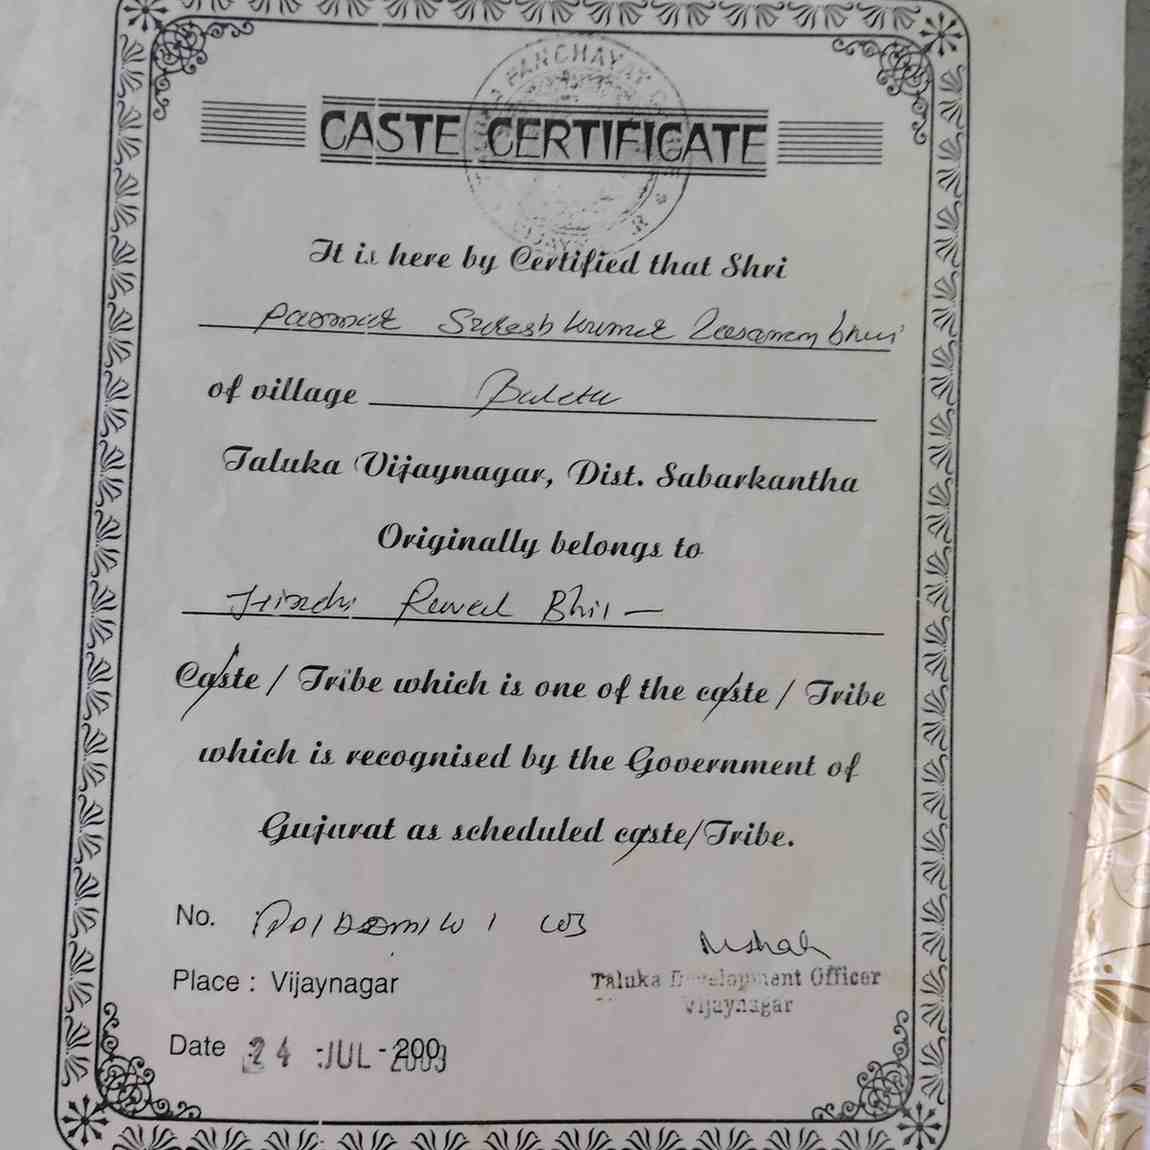 PANCHAYAT
CASTE CERTIFICATE
It is here by Certified that Shri
Parmar Sureshkumar
of village
Taluka Vijaynagar, Dist. Sabarkantha
Originally belongs to
Bhil —
Caste / Tribe which is one of the caste / Tribe
which is recognised by the Government of
Gujarat as scheduled caste/Tribe.
No.
Taluka Development Officer
Vijaynagar
Place : Vijaynagar
Date 24 -JUL-2003